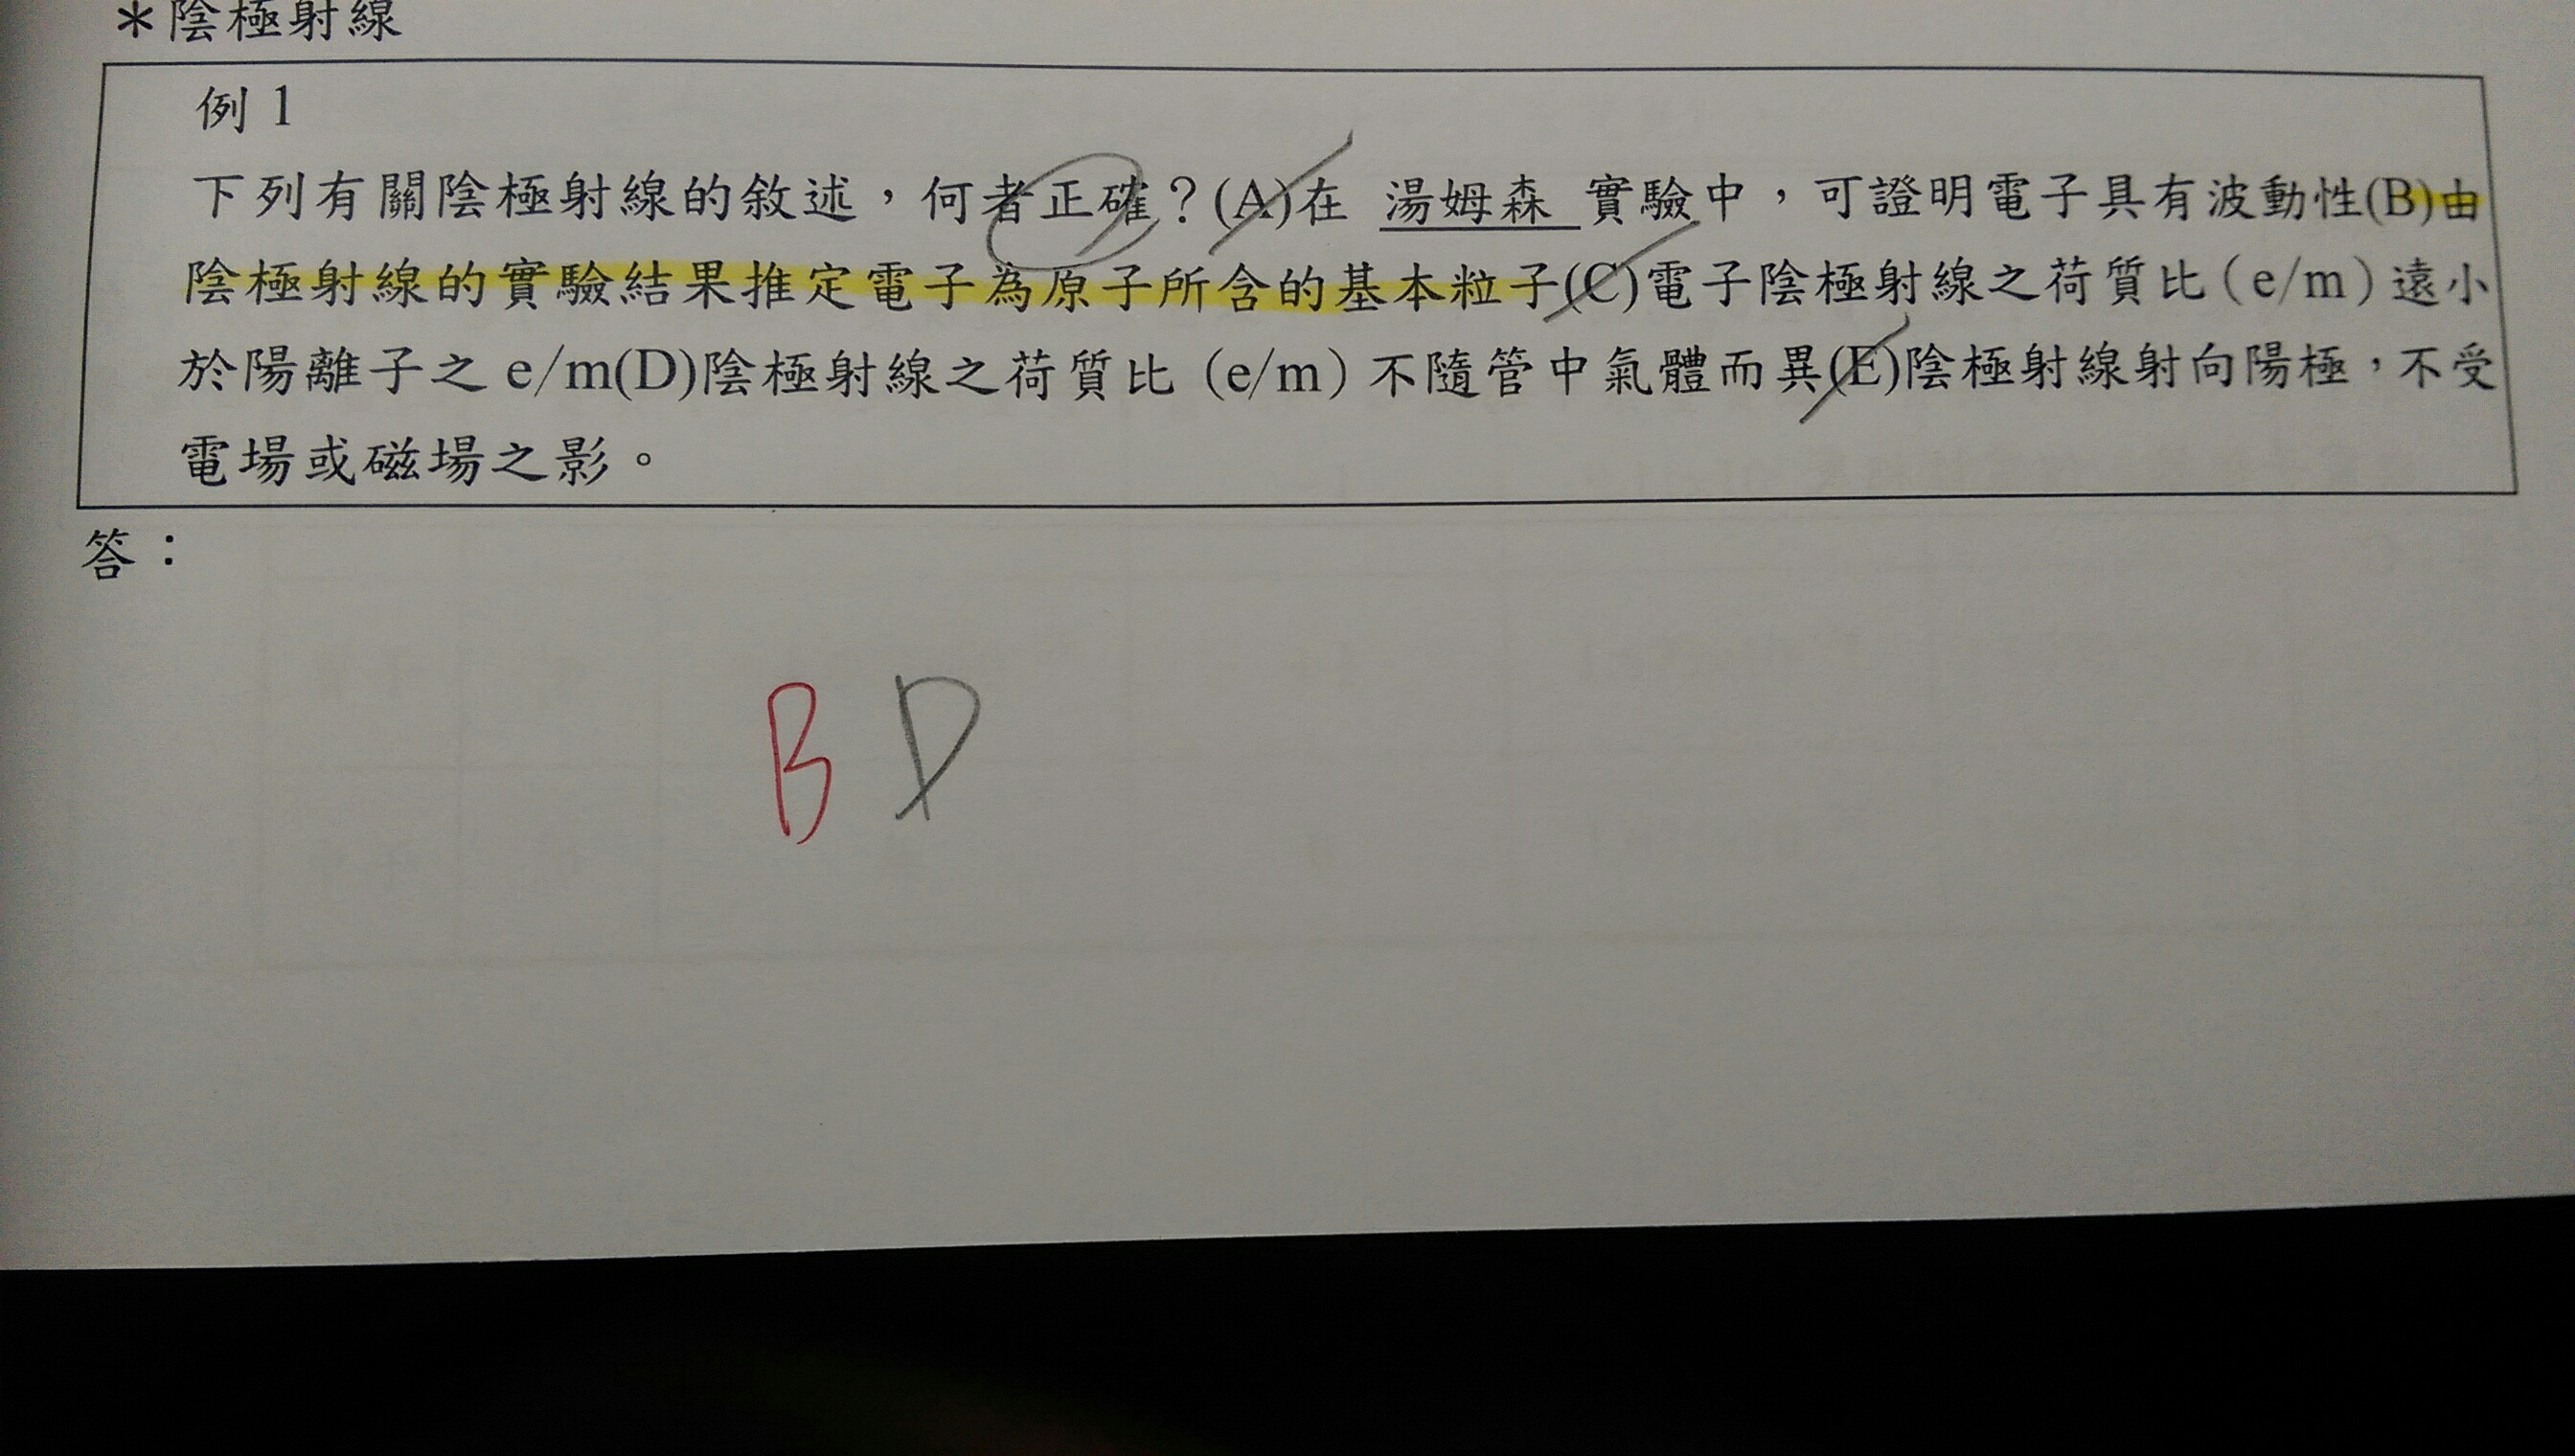 ＊陰極射線
例 1
下列有關陰極射線的敘述，何者正確？(A)在 湯姆森 實驗中，可證明電子具有波動性(B)由
陰極射線的實驗結果推定電子為原子所含的基本粒子(C)電子陰極射線之荷質比（e/m）遠小
於陽離子之 e/m(D)陰極射線之荷質比（e/m）不隨管中氣體而異(E)陰極射線射向陽極，不受
電場或磁場之影。
答：
B D